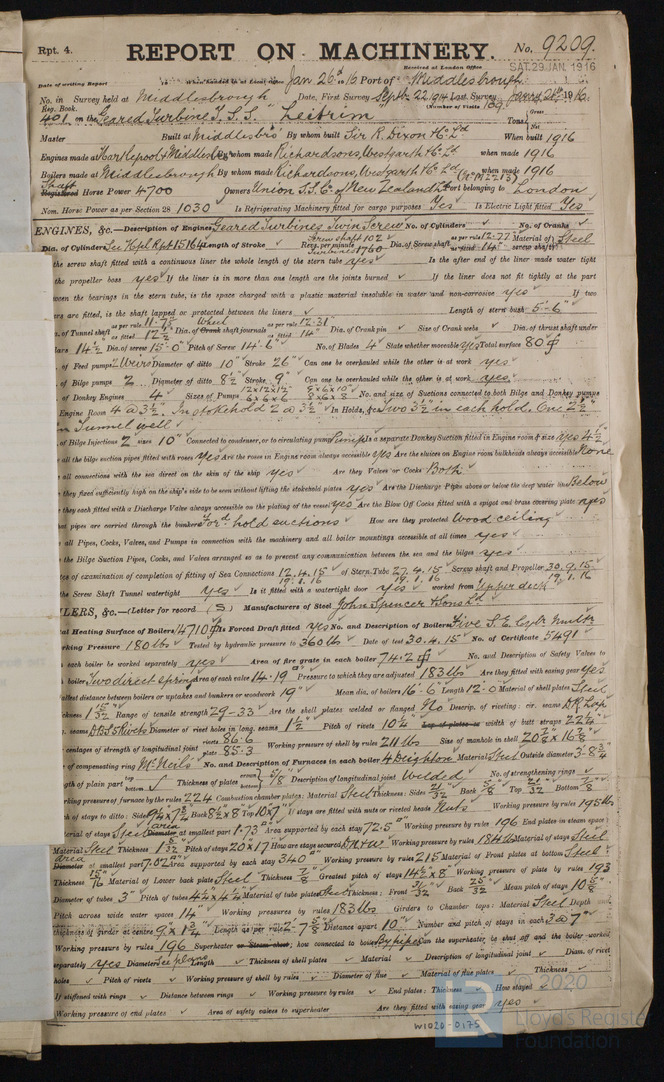 Rpt. 4. REPORT ON MACHINERY. No. 9209.
Received at London Office SAT. 29 JAN. 1916
Date of writing Report Jan 26th 1916 Port of Middlesbrough
No. in Survey held at Middlesbrough Date, First Survey Septr 22 1914 Last Survey, Jany 21st 1916
Reg. Book. (Number of Visits 109)
401 on the Geared Turbine T.S.S. "Leitrim" Tons Gross Net
Master Built at Middlesbro By whom built Sir R. Dixon & Co. Ld When built 1916
Engines made at Hartlepool & Middlesbro By whom made Richardsons, Westgarth & Co. Ld when made 1916
Boilers made at Middlesbrough By whom made Richardsons, Westgarth & Co. Ld when made 1916
Shaft Registered Horse Power 4700 Owners Union S.S. Co. of New Zealand Ld Port belonging to London
Nom. Horse Power as per Section 28 1030 Is Refrigerating Machinery fitted for cargo purposes Yes Is Electric Light fitted Yes
ENGINES, &c.—Description of Engines Geared Turbines Twin Screw No. of Cylinders ✓ No. of Cranks ✓
Dia. of Cylinders See Hpl Rpt 15164 Length of Stroke ✓ Revs. per minute Screw shaft 102 Turbines 1760 Dia. of Screw shaft as per rule 12.77 as fitted 14" Material of screw shaft Steel
the screw shaft fitted with a continuous liner the whole length of the stern tube yes Is the after end of the liner made water tight
the propeller boss yes If the liner is in more than one length are the joints burned ✓ If the liner does not fit tightly at the part
ween the bearings in the stern tube, is the space charged with a plastic material insoluble in water and non-corrosive yes If two
ers are fitted, is the shaft lapped or protected between the liners ✓ Length of stern bush 5'-6"
. of Tunnel shaft as per rule 11.78 as fitted 12½ Dia. of Crank Wheel shaft journals as per rule 12.31" as fitted 14" Dia. of Crank pin ✓ Size of Crank webs ✓ Dia. of thrust shaft under
lars 14½ Dia. of screw 15'-0" Pitch of Screw 14'-6" No. of Blades 4 State whether moveable Yes Total surface 80
. of Feed pumps 2 Weirs Diameter of ditto 10" Stroke 26" Can one be overhauled while the other is at work yes
. of Bilge pumps 2 Diameter of ditto 8½ Stroke 9" Can one be overhauled while the other is at work yes
. of Donkey Engines 4 Sizes of Pumps 12x12x12 6x6x6 8x6x10" 8x6x8 No. and size of Suctions connected to both Bilge and Donkey pumps
Engine Room 4 @ 3½ In stokehold 2 @ 3½" In Holds, &c. Two 3½" in each hold. One 2½"
in Tunnel well
. of Bilge Injections 2 sizes 10" Connected to condenser, or to circulating pump Pumps Is a separate Donkey Suction fitted in Engine room & size Yes 4½
all the bilge suction pipes fitted with roses Yes Are the roses in Engine room always accessible Yes Are the sluices on Engine room bulkheads always accessible None
all connections with the sea direct on the skin of the ship yes Are they Valves or Cocks Both
they fixed sufficiently high on the ship's side to be seen without lifting the stokehold plates yes Are the Discharge Pipes above or below the deep water line Below
they each fitted with a Discharge Valve always accessible on the plating of the vessel yes Are the Blow Off Cocks fitted with a spigot and brass covering plate yes
hat pipes are carried through the bunkers For'd hold suctions How are they protected Wood ceiling
all Pipes, Cocks, Valves, and Pumps in connection with the machinery and all boiler mountings accessible at all times yes
the Bilge Suction Pipes, Cocks, and Valves arranged so as to prevent any communication between the sea and the bilges yes
tes of examination of completion of fitting of Sea Connections 12.4.15 19.1.16 of Stern Tube 27.4.15 19.1.16 Screw shaft and Propeller 30.9.15 19.1.16
the Screw Shaft Tunnel watertight yes Is it fitted with a watertight door yes worked from Upper deck
LERS, &c.—(Letter for record (S) Manufacturers of Steel John Spencer & Sons Ld
al Heating Surface of Boilers 14710 Is Forced Draft fitted yes No. and Description of Boilers Five S.E. Cyl Multr
rking Pressure 180 lbs Tested by hydraulic pressure to 360 lbs Date of test 30.4.15 No. of Certificate 5491
each boiler be worked separately yes Area of fire grate in each boiler 74.2 No. and Description of Safety Valves to
boiler Two direct spring Area of each valve 14.19 Pressure to which they are adjusted 183 lbs Are they fitted with easing gear Yes
allest distance between boilers or uptakes and bunkers or woodwork 19" Mean dia. of boilers 16'-6 Length 12'-0 Material of shell plates Steel
ickness 1 15/32 Range of tensile strength 29-33 Are the shell plates welded or flanged No Descrip. of riveting: cir. seams DR Lap
. seams DBS 5 Rivets Diameter of rivet holes in long. seams 1½ Pitch of rivets 10½ Lap of plates or width of butt straps 22¼
centages of strength of longitudinal joint rivets 86.6 plate 85.3 Working pressure of shell by rules 211 lbs Size of manhole in shell 20⅞ x 16⅞
of compensating ring McNeil's No. and Description of Furnaces in each boiler 4 Deighton Material Steel Outside diameter 3'-8¾
gth of plain part top bottom ✓ Thickness of plates crown bottom 5/8 Description of longitudinal joint Welded No. of strengthening rings ✓
rking pressure of furnace by the rules 224 Combustion chamber plates: Material Steel Thickness: Sides 21/32 Back 5/8 Top 21/32 Bottom 7/8
h of stays to ditto: Sides 9¼ x 7¾ Back 8½ x 8 Top 10 x 7 If stays are fitted with nuts or riveted heads Nuts Working pressure by rules 195 lbs
aterial of stays Steel area Diameter at smallest part 1.73 Area supported by each stay 72.5 Working pressure by rules 196 End plates in steam space:
Material Steel Thickness 1 3/32 Pitch of stays 20 x 17 How are stays secured DN & W Working pressure by rules 184 lbs Material of stays Steel
area Diameter at smallest part 7.02 Area supported by each stay 340 Working pressure by rules 215 Material of Front plates at bottom Steel
Thickness 15/16 Material of Lower back plate Steel Thickness 7/8 Greatest pitch of stays 14½ x 8 Working pressure of plate by rules 193
Diameter of tubes 3" Pitch of tubes 4¼ x 4¼ Material of tube plates Steel Thickness: Front 31/32 Back 25/32 Mean pitch of stays 10⅝
Pitch across wide water spaces 14" Working pressures by rules 183 lbs Girders to Chamber tops: Material Steel Depth and
thickness of girder at centre 9 x 1½ Length as per rule 2'-7⅝ Distance apart 10" Number and pitch of stays in each 3 @ 7"
Working pressure by rules 196 Superheater or Steam chest; how connected to boiler By pipes Can the superheater be shut off and the boiler worked
separately Yes Diameter See plans Length ✓ Thickness of shell plates ✓ Material ✓ Description of longitudinal joint ✓ Diam. of rivet
holes ✓ Pitch of rivets ✓ Working pressure of shell by rules ✓ Diameter of flue ✓ Material of flue plates ✓ Thickness ✓
If stiffened with rings ✓ Distance between rings ✓ Working pressure by rules ✓ End plates: Thickness ✓ How stayed
Working pressure of end plates ✓ Area of safety valves to superheater Are they fitted with easing gear yes
© 2020
Lloyd's Register
Foundation
W1020-0175